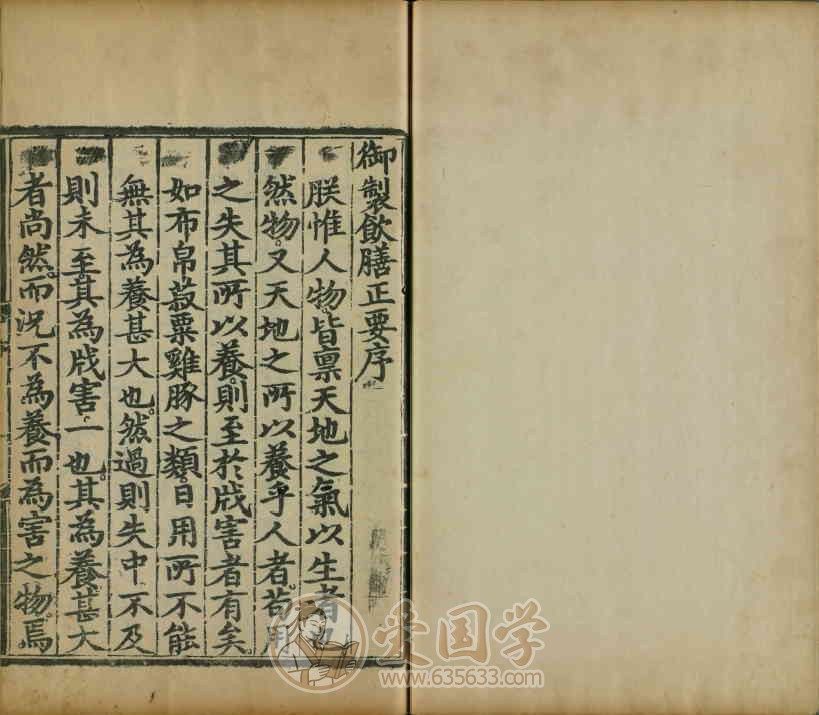 御製飲膳正要序
朕惟人物皆禀天地之氣以生者也
然物又天地之所以養乎人者苟用
之失其所以養則至於戕害者有矣
如布帛菽粟雞豚之類日用所不能
無其為養甚大也然過則失中不及
則未至其為戕害一也其為養甚大
者尚然而況不為養而為害之物焉
爱国学
www.635633.com